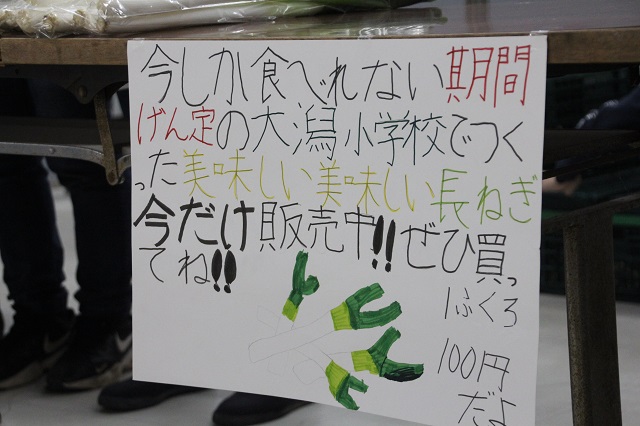 今しか食べれない期間
げん定の大潟小学校でつく
った美味しい美味しい長ねぎ
今だけ販売中!!ぜひ買っ
てね!!
1ふくろ
100円
だよ